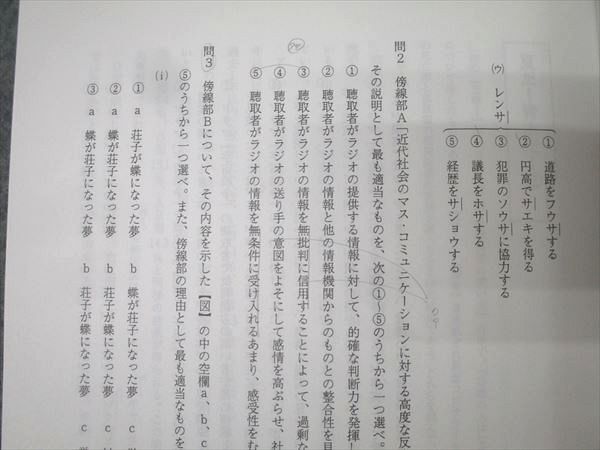 ① 道路をフウサする
② 円高でサエキを得る
(ウ) レンサ ③ 犯罪のソウサに協力する
④ 議長をホサする
⑤ 経歴をサショウする
問2 傍線部A「近代社会のマス・コミュニケーションに対する高度な反
その説明として最も適当なものを、次の①〜⑤のうちから一つ選べ。
① 聴取者がラジオの提供する情報に対して、的確な判断力を発揮し
② 聴取者がラジオの情報と他の情報機関からのものとの整合性を見
③ 聴取者がラジオの情報を無批判に信用することによって、過剰な
④ 聴取者がラジオの送り手の意図をよそにして感情を高ぶらせ、社
⑤ 聴取者がラジオの情報を無条件に受け入れるあまり、感受性をむ
問3 傍線部Bについて、その内容を示した【図】の中の空欄a、b、c
⑤のうちから一つ選べ。また、傍線部の理由として最も適当なものを
(i)
① a 荘子が蝶になった夢 b 蝶が荘子になった夢 c
② a 蝶が荘子になった夢 b 荘子が蝶になった夢 c
③ a 蝶が荘子になった夢 b 荘子が蝶になった夢 c